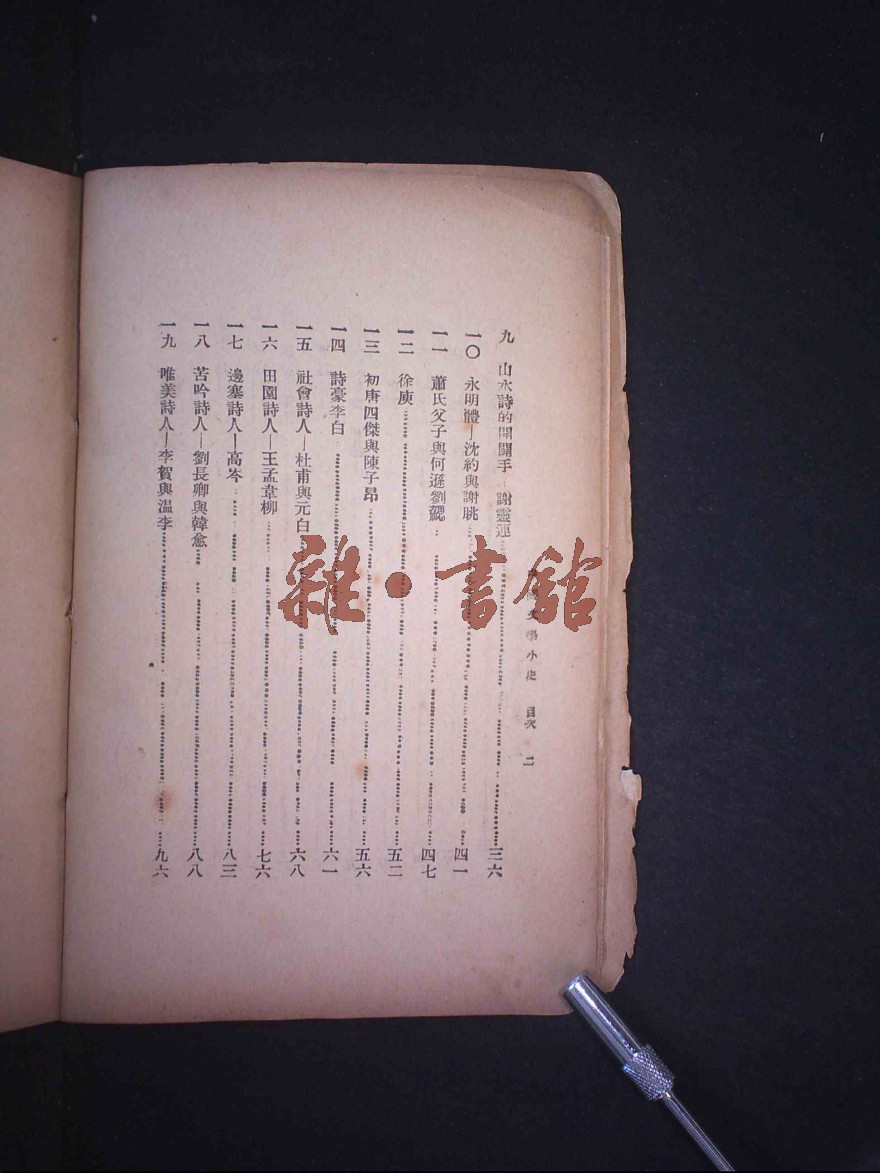 文學小史　目次　二
九　山水詩的開闢手—謝靈運……三六
一〇　永明體—沈約與謝朓……四一
一一　蕭氏父子與何遜劉勰……四七
一二　徐庾……五二
一三　初唐四傑與陳子昂……五六
一四　詩豪李白……六一
一五　社會詩人—杜甫與元白……六八
一六　田園詩人—王孟韋柳……七六
一七　邊塞詩人—高岑……八三
一八　苦吟詩人—劉長卿與韓愈……八八
一九　唯美詩人—李賀與溫李……九六
雜·書館